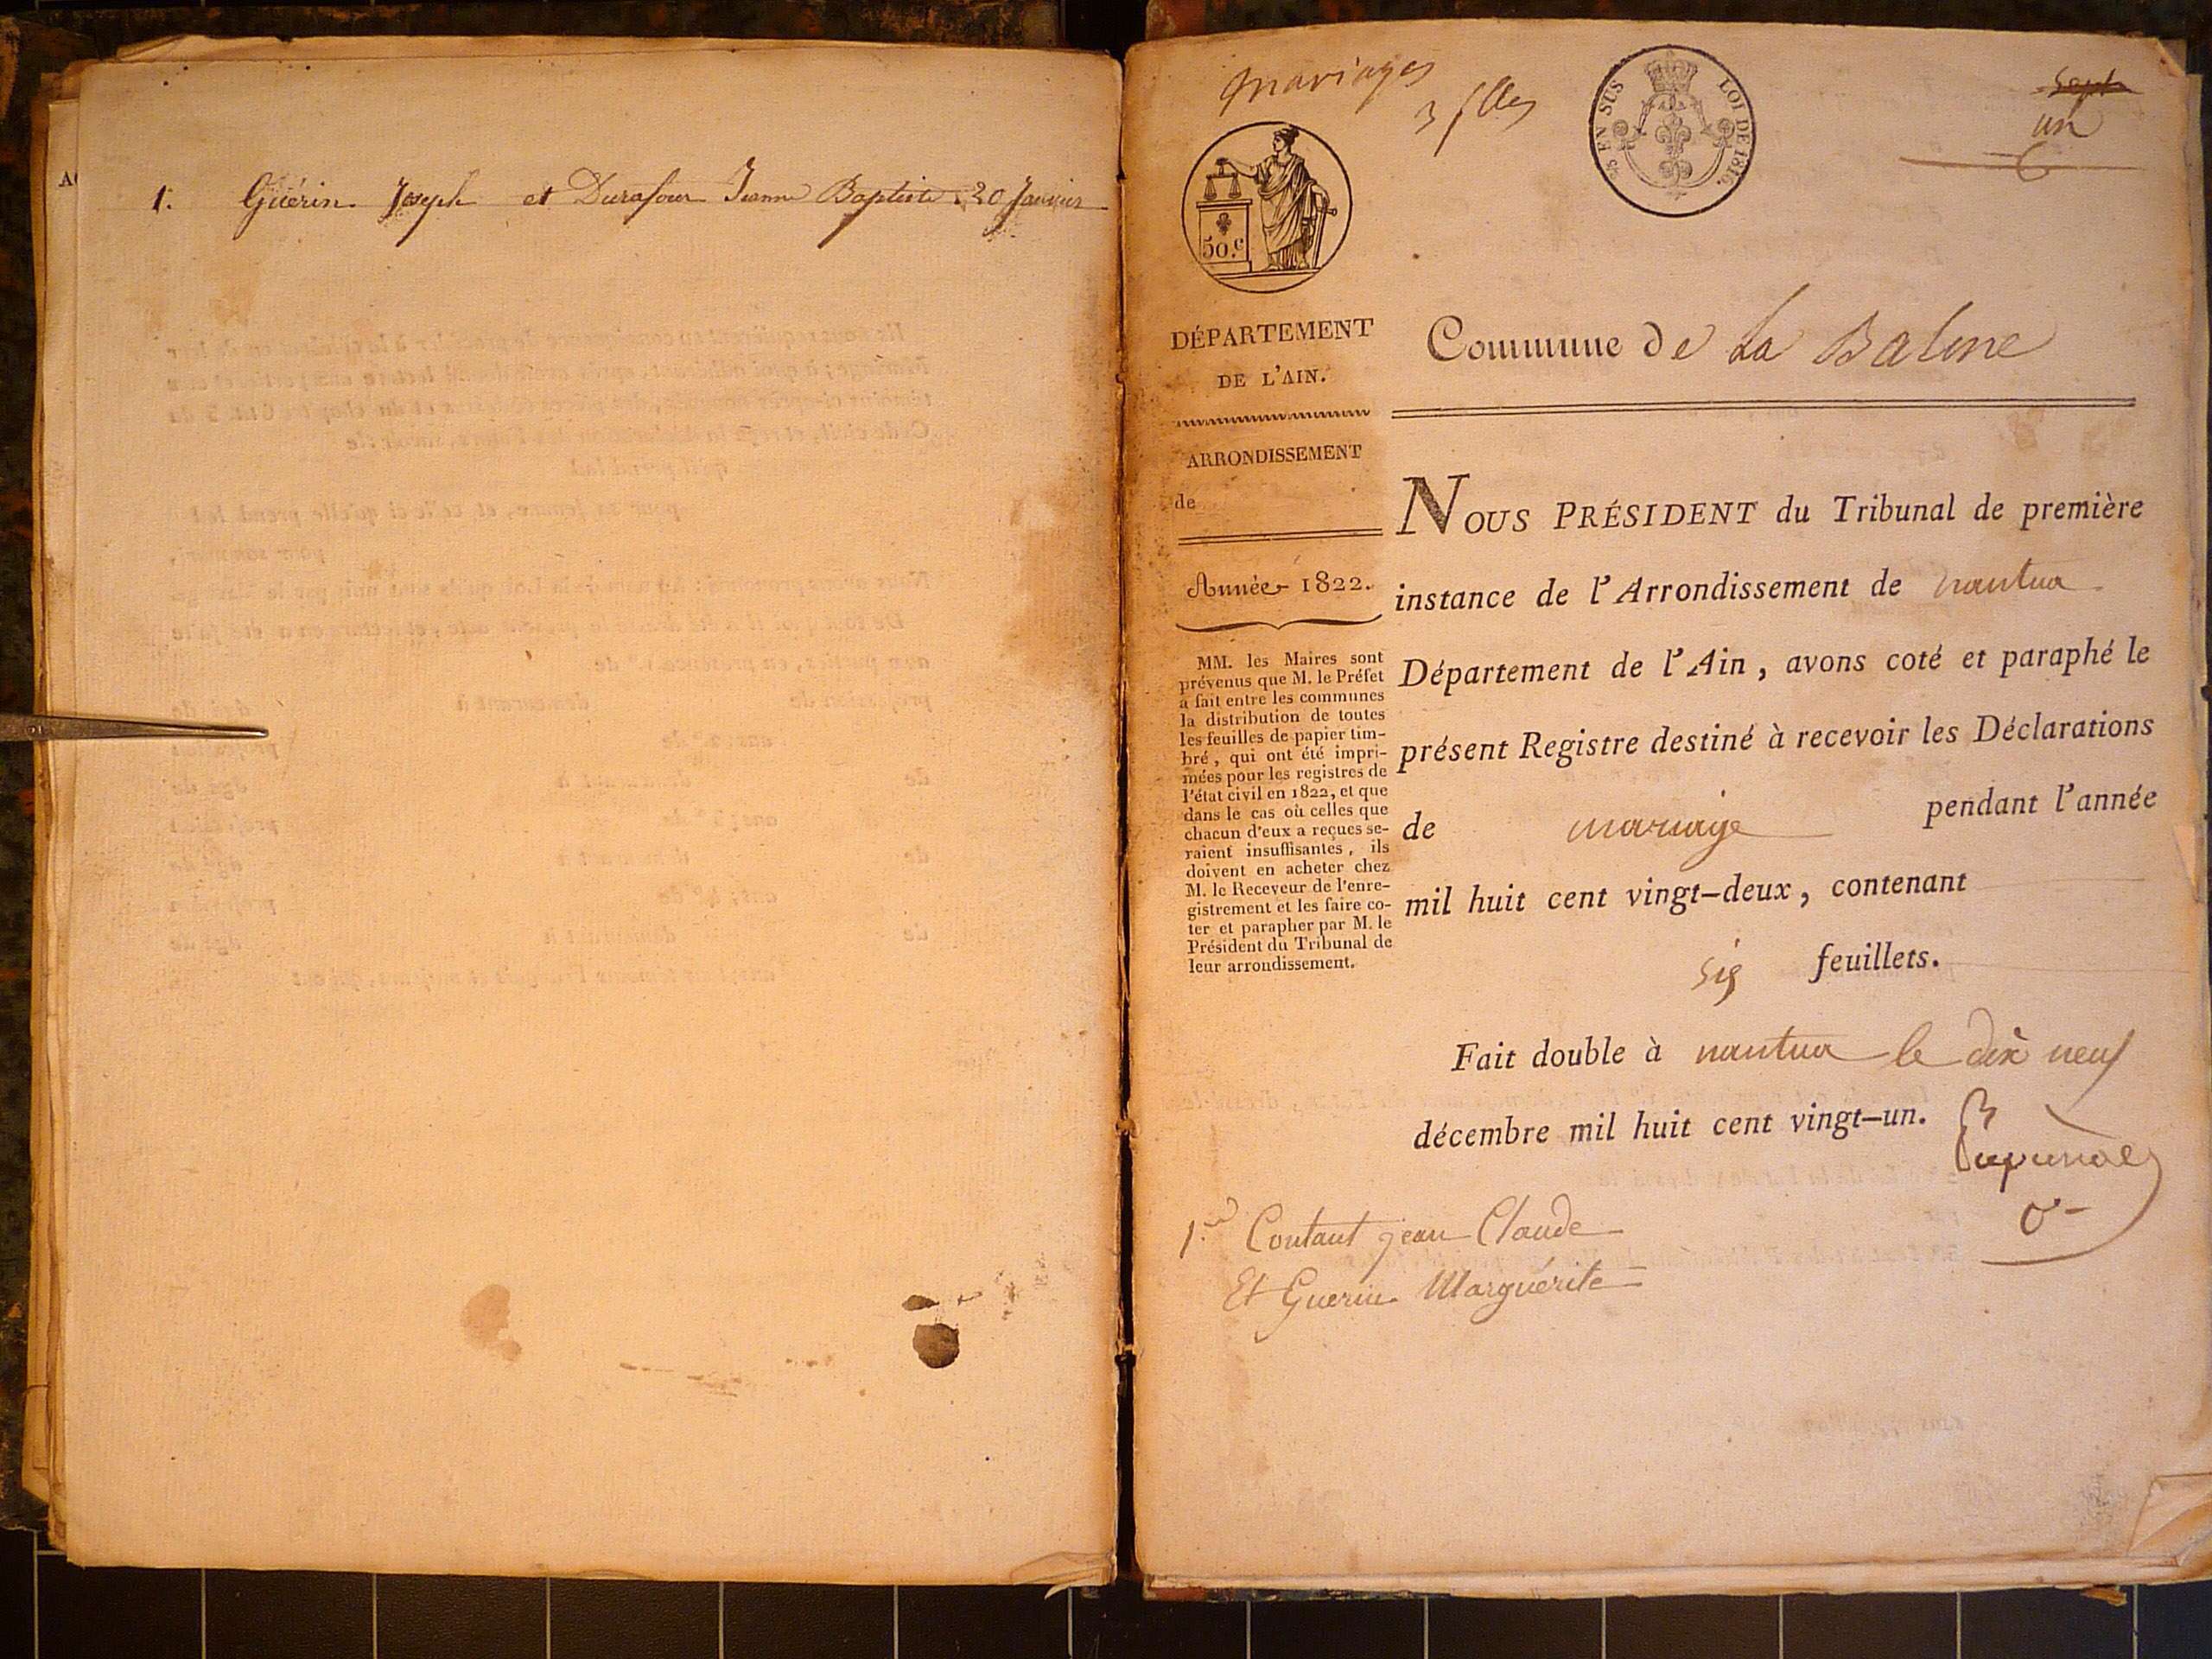 1. Guérin Joseph et Durafour Jeanne Baptiste 20 Janvier
mariages
3 flles
EN SUS LOI DE 1816.
Sept
un
50.c
DÉPARTEMENT
DE L'AIN.
ARRONDISSEMENT
de
Année 1822.
MM. les Maires sont
prévenus que M. le Préfet
a fait entre les communes
la distribution de toutes
les feuilles de papier tim-
bré, qui ont été impri-
mées pour les registres de
l'état civil en 1822, et que
dans le cas où celles que
chacun d'eux a reçues se-
raient insuffisantes, ils
doivent en acheter chez
M. le Receveur de l'enre-
gistrement et les faire co-
ter et parapher par M. le
Président du Tribunal de
leur arrondissement.
Commune de La Balme
NOUS PRÉSIDENT du Tribunal de première
instance de l'Arrondissement de nantua
Département de l'Ain, avons coté et paraphé le
présent Registre destiné à recevoir les Déclarations
de mariage pendant l'année
mil huit cent vingt-deux, contenant
six feuillets.
Fait double à nantua le dix neuf
décembre mil huit cent vingt-un.
1.er Contant jean Claude
Et Guerin Marguérite